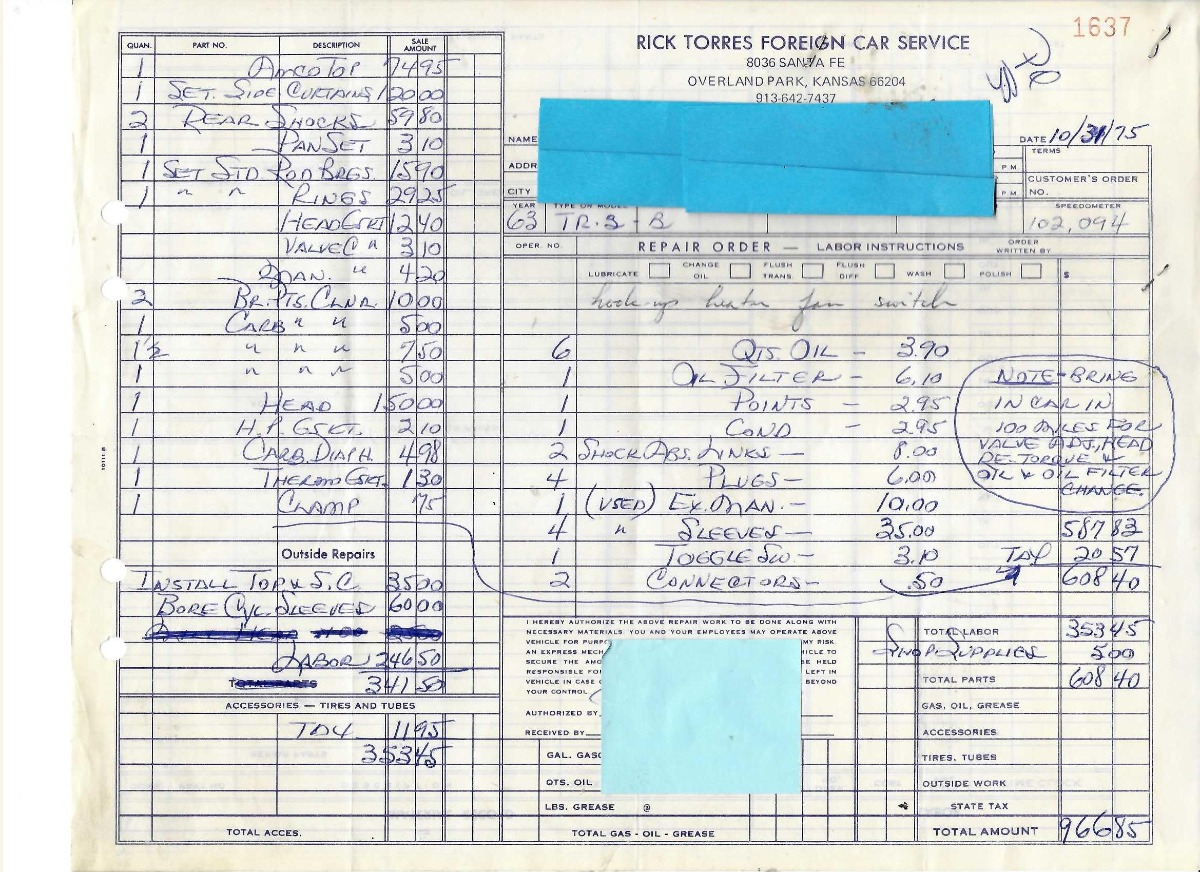 1637
RICK TORRES FOREIGN CAR SERVICE
8036 SANTA FE
OVERLAND PARK, KANSAS 66204
913-642-7437
NAME
DATE 10/31/75
ADDR
P M
TERMS
CITY
P M
CUSTOMER'S ORDER NO.
YEAR TYPE OR MODEL
SPEEDOMETER
63 TR.3-B
102,094
OPER. NO. REPAIR ORDER — LABOR INSTRUCTIONS ORDER WRITTEN BY
LUBRICATE CHANGE OIL FLUSH TRANS. FLUSH DIFF WASH POLISH $
hook-up heater fan switch
QUAN. PART NO. DESCRIPTION SALE AMOUNT
1 AMCO TOP 74 95
1 SET. SIDE CURTAINS 120 00
2 REAR SHOCKS 59 80
1 PAN SET 3 10
1 SET STD. ROD BRGS. 15 90
1 " " RINGS 29 25
HEAD GSKT 12 40
VALVE C " 3 10
MAN. " 4 20
2 BR. PTS. CLNR. 10 00
1 CARB " " 5 00
1 1/2 " " " 7 50
1 " " " 5 00
1 HEAD 150 00
1 H.P. GSKT. 2 10
1 CARB. DIAPH. 4 98
1 THERMO GSKT. 1 30
1 CLAMP 75
Outside Repairs
INSTALL TOP & S.C. 35 00
BORE CYL. SLEEVES 60 00
LABOR 246 50
TOTAL PARTS 341 50
ACCESSORIES — TIRES AND TUBES
TAX 11 95
353 45
TOTAL ACCES.
6 QTS. OIL — 3.90
1 OIL FILTER — 6.10
1 POINTS — 2.95
1 COND — 2.95
2 SHOCK ABS. LINKS — 8.00
4 PLUGS — 6.00
1 (USED) EX. MAN. — 10.00
4 " SLEEVES — 35.00
1 TOGGLE SW — 3.10
2 CONNECTORS — .50
NOTE - BRING
IN CAR IN
100 MILES FOR
VALVE ADJ., HEAD
RE-TORQUE &
OIL & OIL FILTER
CHANGE.
587 83
TAX 20 57
608 40
I HEREBY AUTHORIZE THE ABOVE REPAIR WORK TO BE DONE ALONG WITH
NECESSARY MATERIALS. YOU AND YOUR EMPLOYEES MAY OPERATE ABOVE
VEHICLE FOR MY RISK.
AN EXPRESS
SECURE THE BE HELD
RESPONSIBLE LEFT IN
VEHICLE IN CASE BEYOND
YOUR CONTROL
AUTHORIZED BY
RECEIVED BY
GAL.
QTS. OIL
LBS. GREASE @
TOTAL GAS - OIL - GREASE
TOTAL LABOR 353 45
SHOP SUPPLIES 5 00
TOTAL PARTS 608 40
GAS, OIL, GREASE
ACCESSORIES
TIRES, TUBES
OUTSIDE WORK
STATE TAX
TOTAL AMOUNT 966 85